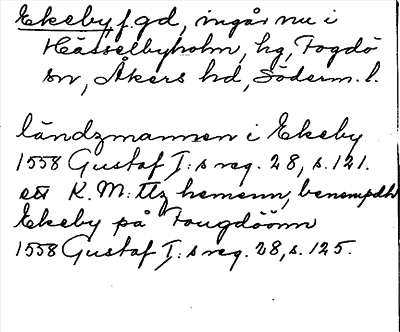 Ekeby, f. gd, ingår nu i
Hässelbyholm, hg, Fogdö
sn, Åkers hd, Söderm. l.
ländzmannen i Ekeby
1558 Gustaf I:s reg. 28, s. 121.
ett K. M:ttz hemenn, benempdh
Ekeby på Fougdöönn
1558 Gustaf I:s reg. 28, s. 125.